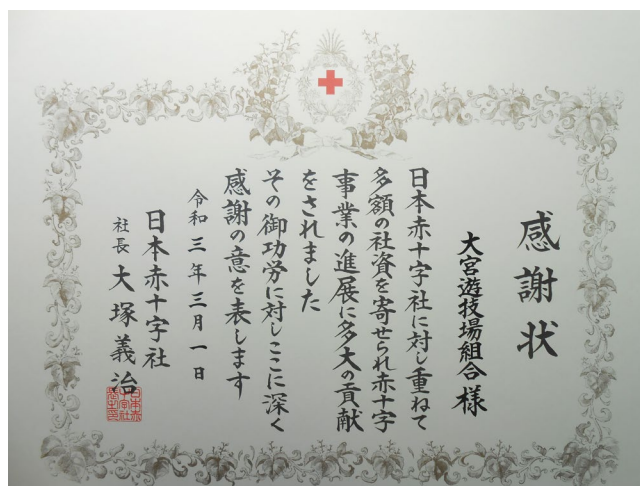 感謝状
大宮遊技場組合様
日本赤十字社に対し重ねて
多額の社資を寄せられ赤十字
事業の進展に多大の貢献
をされました
その御功労に対しここに深く
感謝の意を表します
令和三年三月一日
日本赤十字社
社長 大塚義治